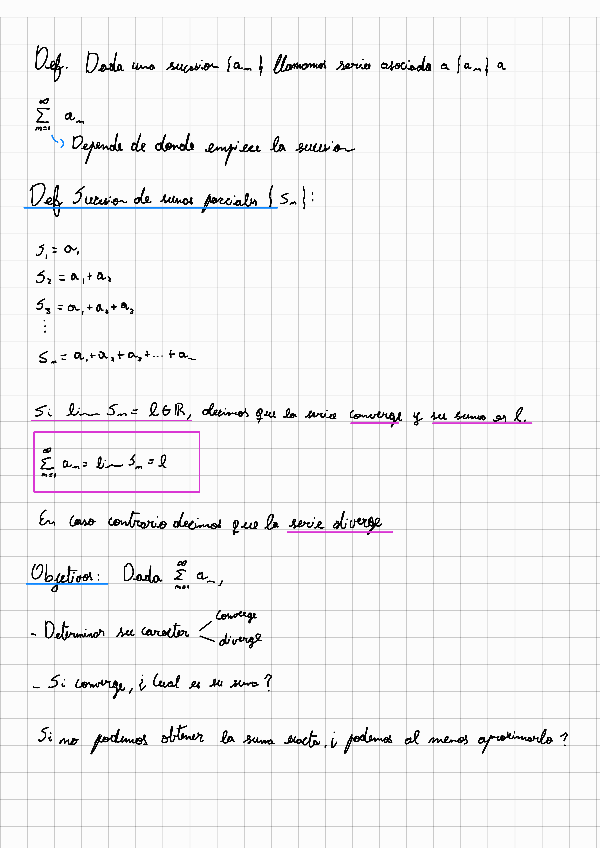 Def. Dada una sucesion {a_n} llamamos serie asociada a {a_n} a
∑_{n=1}^{∞} a_n
↳ Depende de donde empiece la sucesion
Def Sucesion de sumas parciales {S_n}:
S_1 = a_1
S_2 = a_1 + a_2
S_3 = a_1 + a_2 + a_3
⋮
S_n = a_1 + a_2 + a_3 + ... + a_n
Si lim S_n = l ∈ ℝ, decimos que la serie converge y su suma es l.
∑_{n=1}^{∞} a_n = lim S_n = l
En caso contrario decimos que la serie diverge
Objetivos: Dada ∑_{n=1}^{∞} a_n,
- Determinar su caracter < converge
diverge
- Si converge, ¿Cual es su suma?
Si no podemos obtener la suma exacta, ¿podemos al menos aproximarlo?